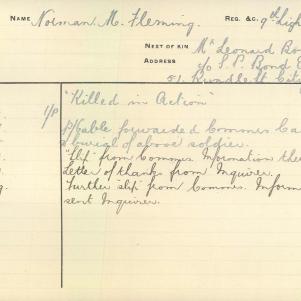 NAME Norman M. Fleming. REG. &C. 9th Ligh
NEXT OF KIN Mr Leonard Bo
ADDRESS c/o S. P. Bond
51. Rundle St City
"Killed in Action"
1/P
P/Cable forwarded Commrs Ca
burial of above soldier.
"Slip" from Commrs. Information the
Letter of thanks from Inquirer.
"Further slip" from Commrs. Inform
sent Inquirer.